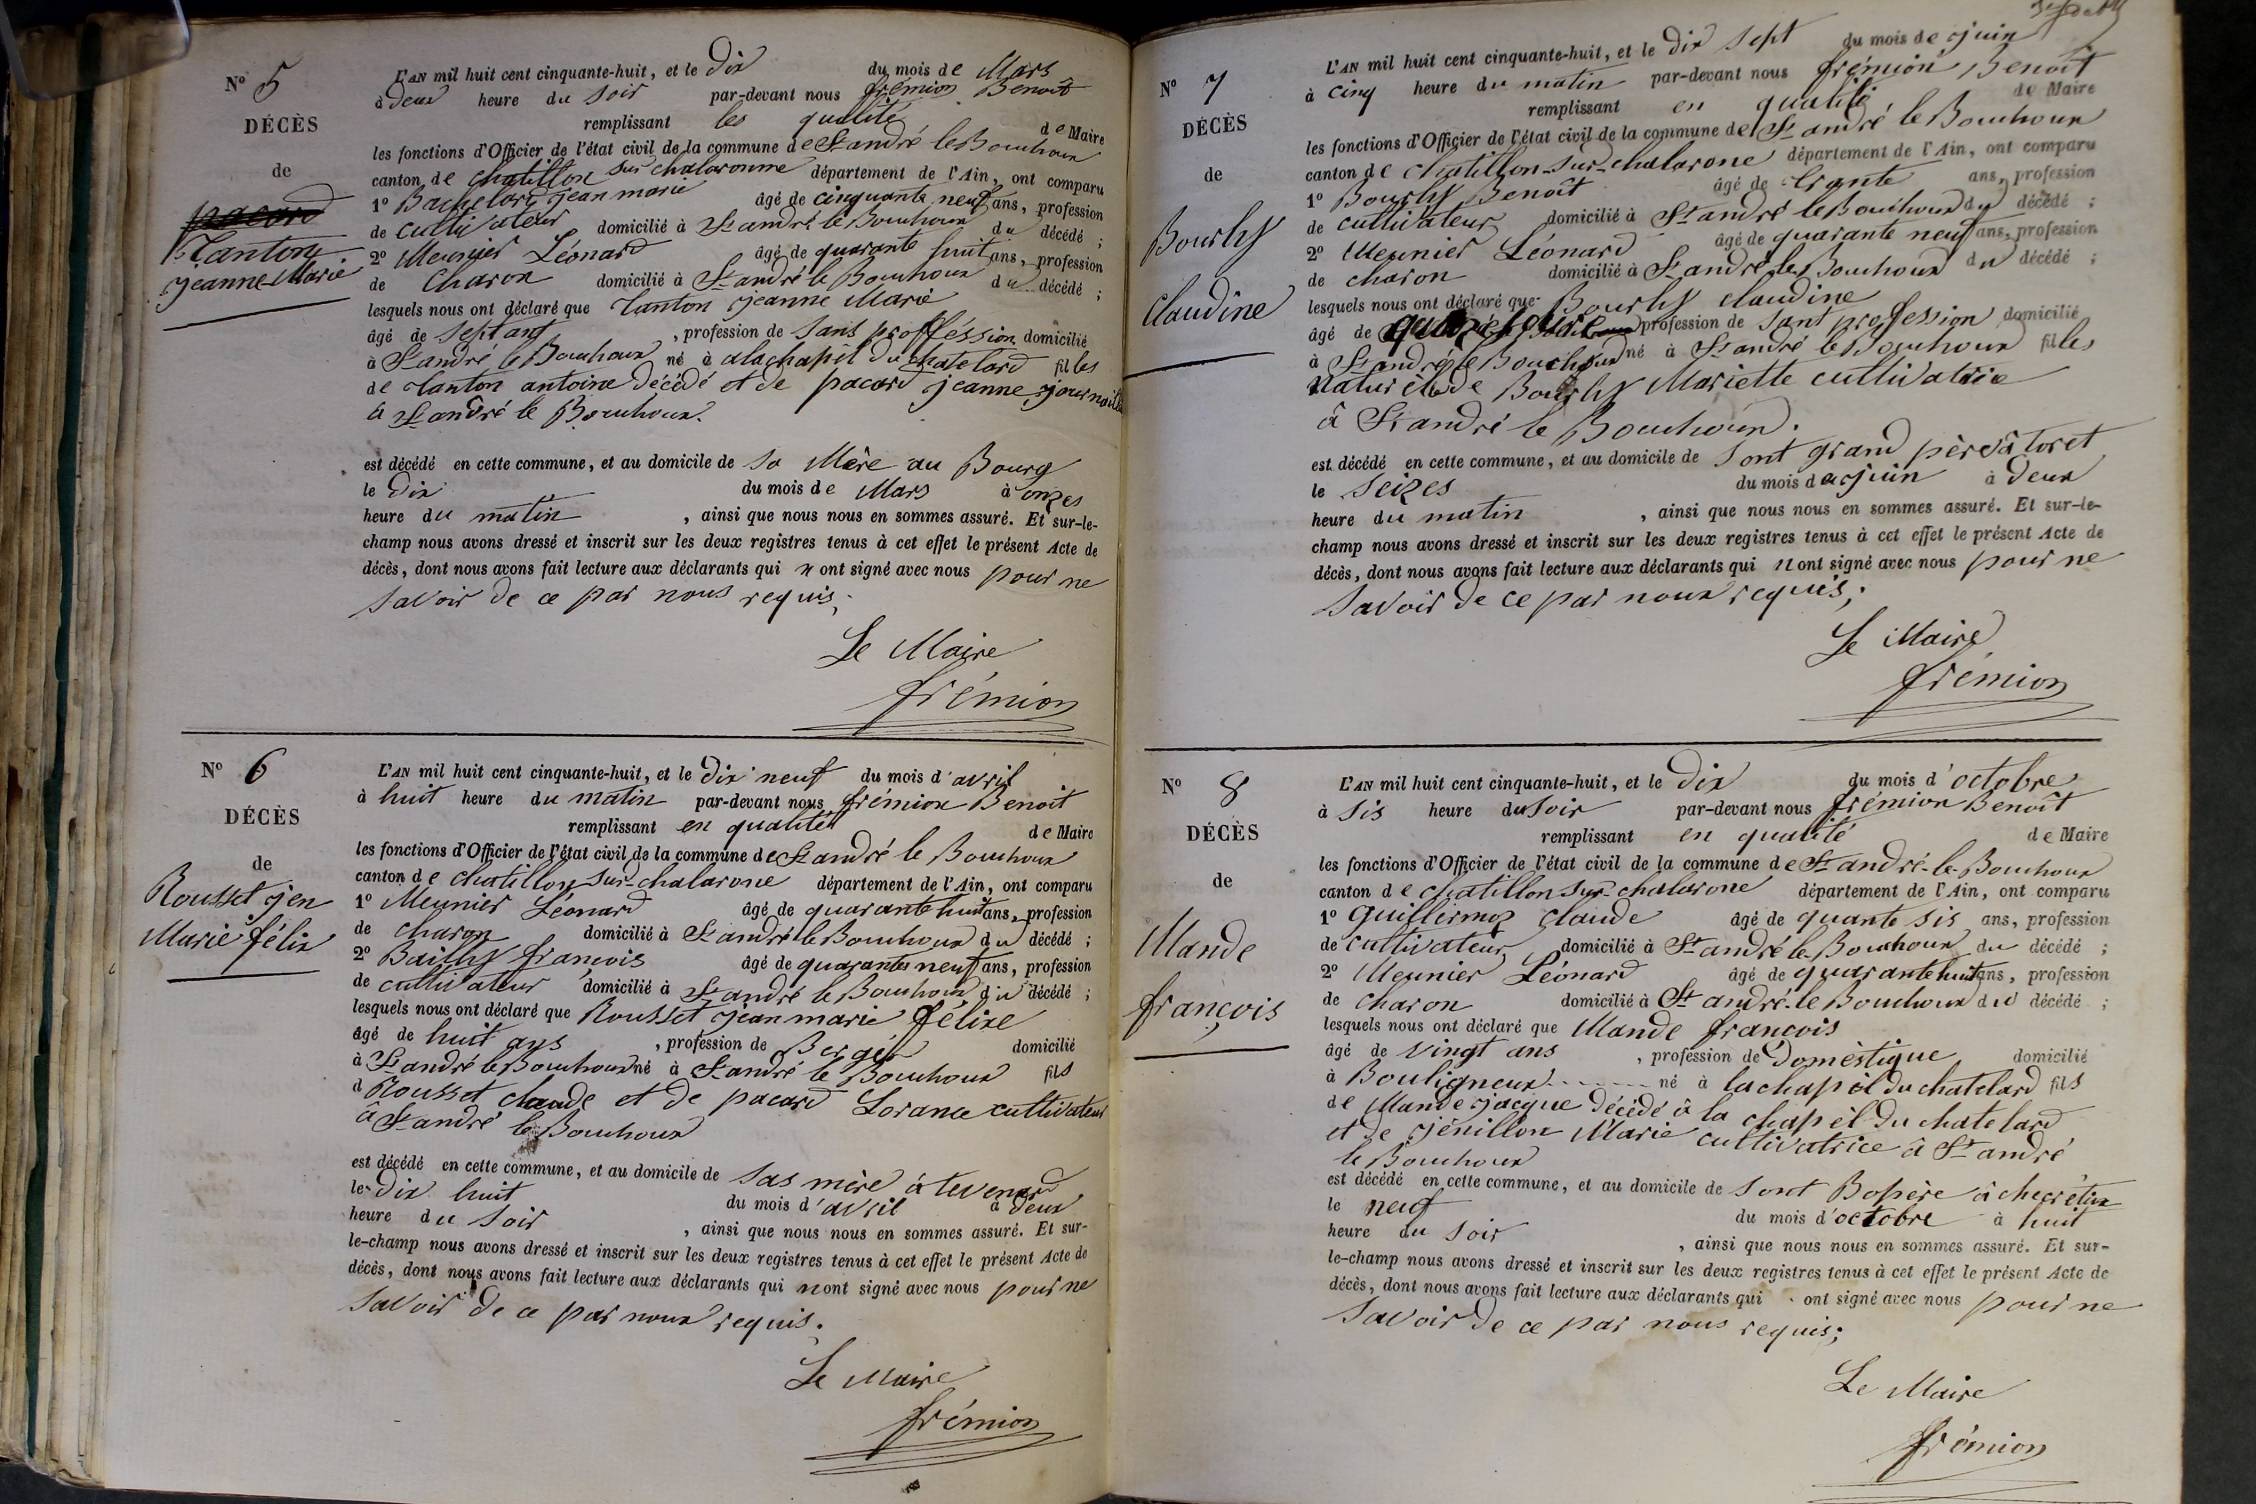 N° 5
DÉCÈS
de
Tanton
jeanne Marie
L'AN mil huit cent cinquante-huit, et le dix du mois de Mars
à deux heure du soir par-devant nous frémion Benoît
remplissant les qualité de Maire
les fonctions d'Officier de l'état civil de la commune de St andré le Bouchoux
canton de chatillon sur chalaronne département de l'Ain, ont comparu
1° Bachelard jean marie âgé de cinquante neuf ans, profession
de cultivateur domicilié à St andré le Bouchoux du décédé ;
2° Meunier Léonard âgé de quarante huit ans, profession
de charon domicilié à St andré le Bouchoux du décédé ;
lesquels nous ont déclaré que Tanton jeanne Marie
âgé de sept ans , profession de sans proffession domicilié
à St andré le Bouchoux né à alachapèl du chatelard filles
de Tanton antoine décédé et de pacard jeanne,
à St andré le Bouchoux.
est décédé en cette commune, et au domicile de sa Mère au Bourg
le dix du mois de Mars à onzes
heure du matin , ainsi que nous nous en sommes assuré. Et sur-le-
champ nous avons dressé et inscrit sur les deux registres tenus à cet effet le présent Acte de
décès, dont nous avons fait lecture aux déclarants qui n ont signé avec nous pour ne
savoir de ce par nous requis;
Le Maire
frémion
N° 6
DÉCÈS
de
Rousset jen
Marie félix
L'AN mil huit cent cinquante-huit, et le dix neuf du mois d'avril
à huit heure du matin par-devant nous frémion Benoit
remplissant en qualité de Maire
les fonctions d'Officier de l'état civil de la commune de St andré le Bouchoux
canton de chatillon sur chalarone département de l'Ain, ont comparu
1° Meunier Léonard âgé de quarante huit ans, profession
de charon domicilié à St andré le Bouchoux du décédé ;
2° Bailly françois âgé de quarantes neuf ans, profession
de cultivateur domicilié à St andré le Bouchoux du décédé ;
lesquels nous ont déclaré que Rousset jean marie félixe
âgé de huit ans , profession de Bergér domicilié
à St andré le Bouchoux né à St andré le Bouchoux fils
d Rousset claude et de pacard Lorance cultivateur
à St andré le Bouchoux
est décédé en cette commune, et au domicile de sas mère à tevenard
le dix huit du mois d'avril à deux
heure du soir , ainsi que nous nous en sommes assuré. Et sur-
le-champ nous avons dressé et inscrit sur les deux registres tenus à cet effet le présent Acte de
décès, dont nous avons fait lecture aux déclarants qui n ont signé avec nous pour ne
savoir de ce par nous requis.
Le Maire
frémion
N° 7
DÉCÈS
de
Bourly
claudine
L'AN mil huit cent cinquante-huit, et le dix sept du mois de juin
à cinq heure du matin par-devant nous frémion Benoît
remplissant en qualité de Maire
les fonctions d'Officier de l'état civil de la commune de St andré le Bouchoux
canton de chatillon-sur-chalarone département de l'Ain, ont comparu
1° Bourly Benoît âgé de trante ans, profession
de cultivateur domicilié à St andré le Bouchoux du décédé ;
2° Meunier Léonard âgé de quarante neuf ans, profession
de charon domicilié à St andré le Bouchoux du décédé ;
lesquels nous ont déclaré que Bourly claudine
âgé de profession de sant profession domicilié
à St andré le Bouchoux né à St andré le Bouchoux filles
naturèle de Bourly Mariette cultivatrice
à St andré le Bouchoux.
est décédé en cette commune, et au domicile de sont grand père à toret
le seizes du mois de juin à deux
heure du matin , ainsi que nous nous en sommes assuré. Et sur-le-
champ nous avons dressé et inscrit sur les deux registres tenus à cet effet le présent Acte de
décès, dont nous avons fait lecture aux déclarants qui n ont signé avec nous pour ne
savoir de ce par nous requis;
Le Maire
frémion
N° 8
DÉCÈS
de
Mande
françois
L'AN mil huit cent cinquante-huit, et le dix du mois d'octobre
à sis heure du soir par-devant nous frémion Benoît
remplissant en qualité de Maire
les fonctions d'Officier de l'état civil de la commune de St andré-le-Bouchoux
canton de chatillon sur chalarone département de l'Ain, ont comparu
1° guillermoz claude âgé de quante sis ans, profession
de cultivateur domicilié à St andré le Bouchoux du décédé ;
2° Meunier Léonard âgé de quarante huit ans, profession
de charon domicilié à St andré-le Bouchoux du décédé ;
lesquels nous ont déclaré que Mande françois
âgé de vingt ans , profession de Domèstique domicilié
à Bouligneux né à lachapèl du chatelard fils
de Mande jacque décédé à la chapèl du chatelard
et de jénillon Marie cultivatrice à St andré
le Bouchoux
est décédé en cette commune, et au domicile de sont Bopère à checrétin
le neuf du mois d'octobre à huit
heure du soir , ainsi que nous nous en sommes assuré. Et sur-
le-champ nous avons dressé et inscrit sur les deux registres tenus à cet effet le présent Acte de
décès, dont nous avons fait lecture aux déclarants qui ont signé avec nous pour ne
savoir de ce par nous requis;
Le Maire
frémion